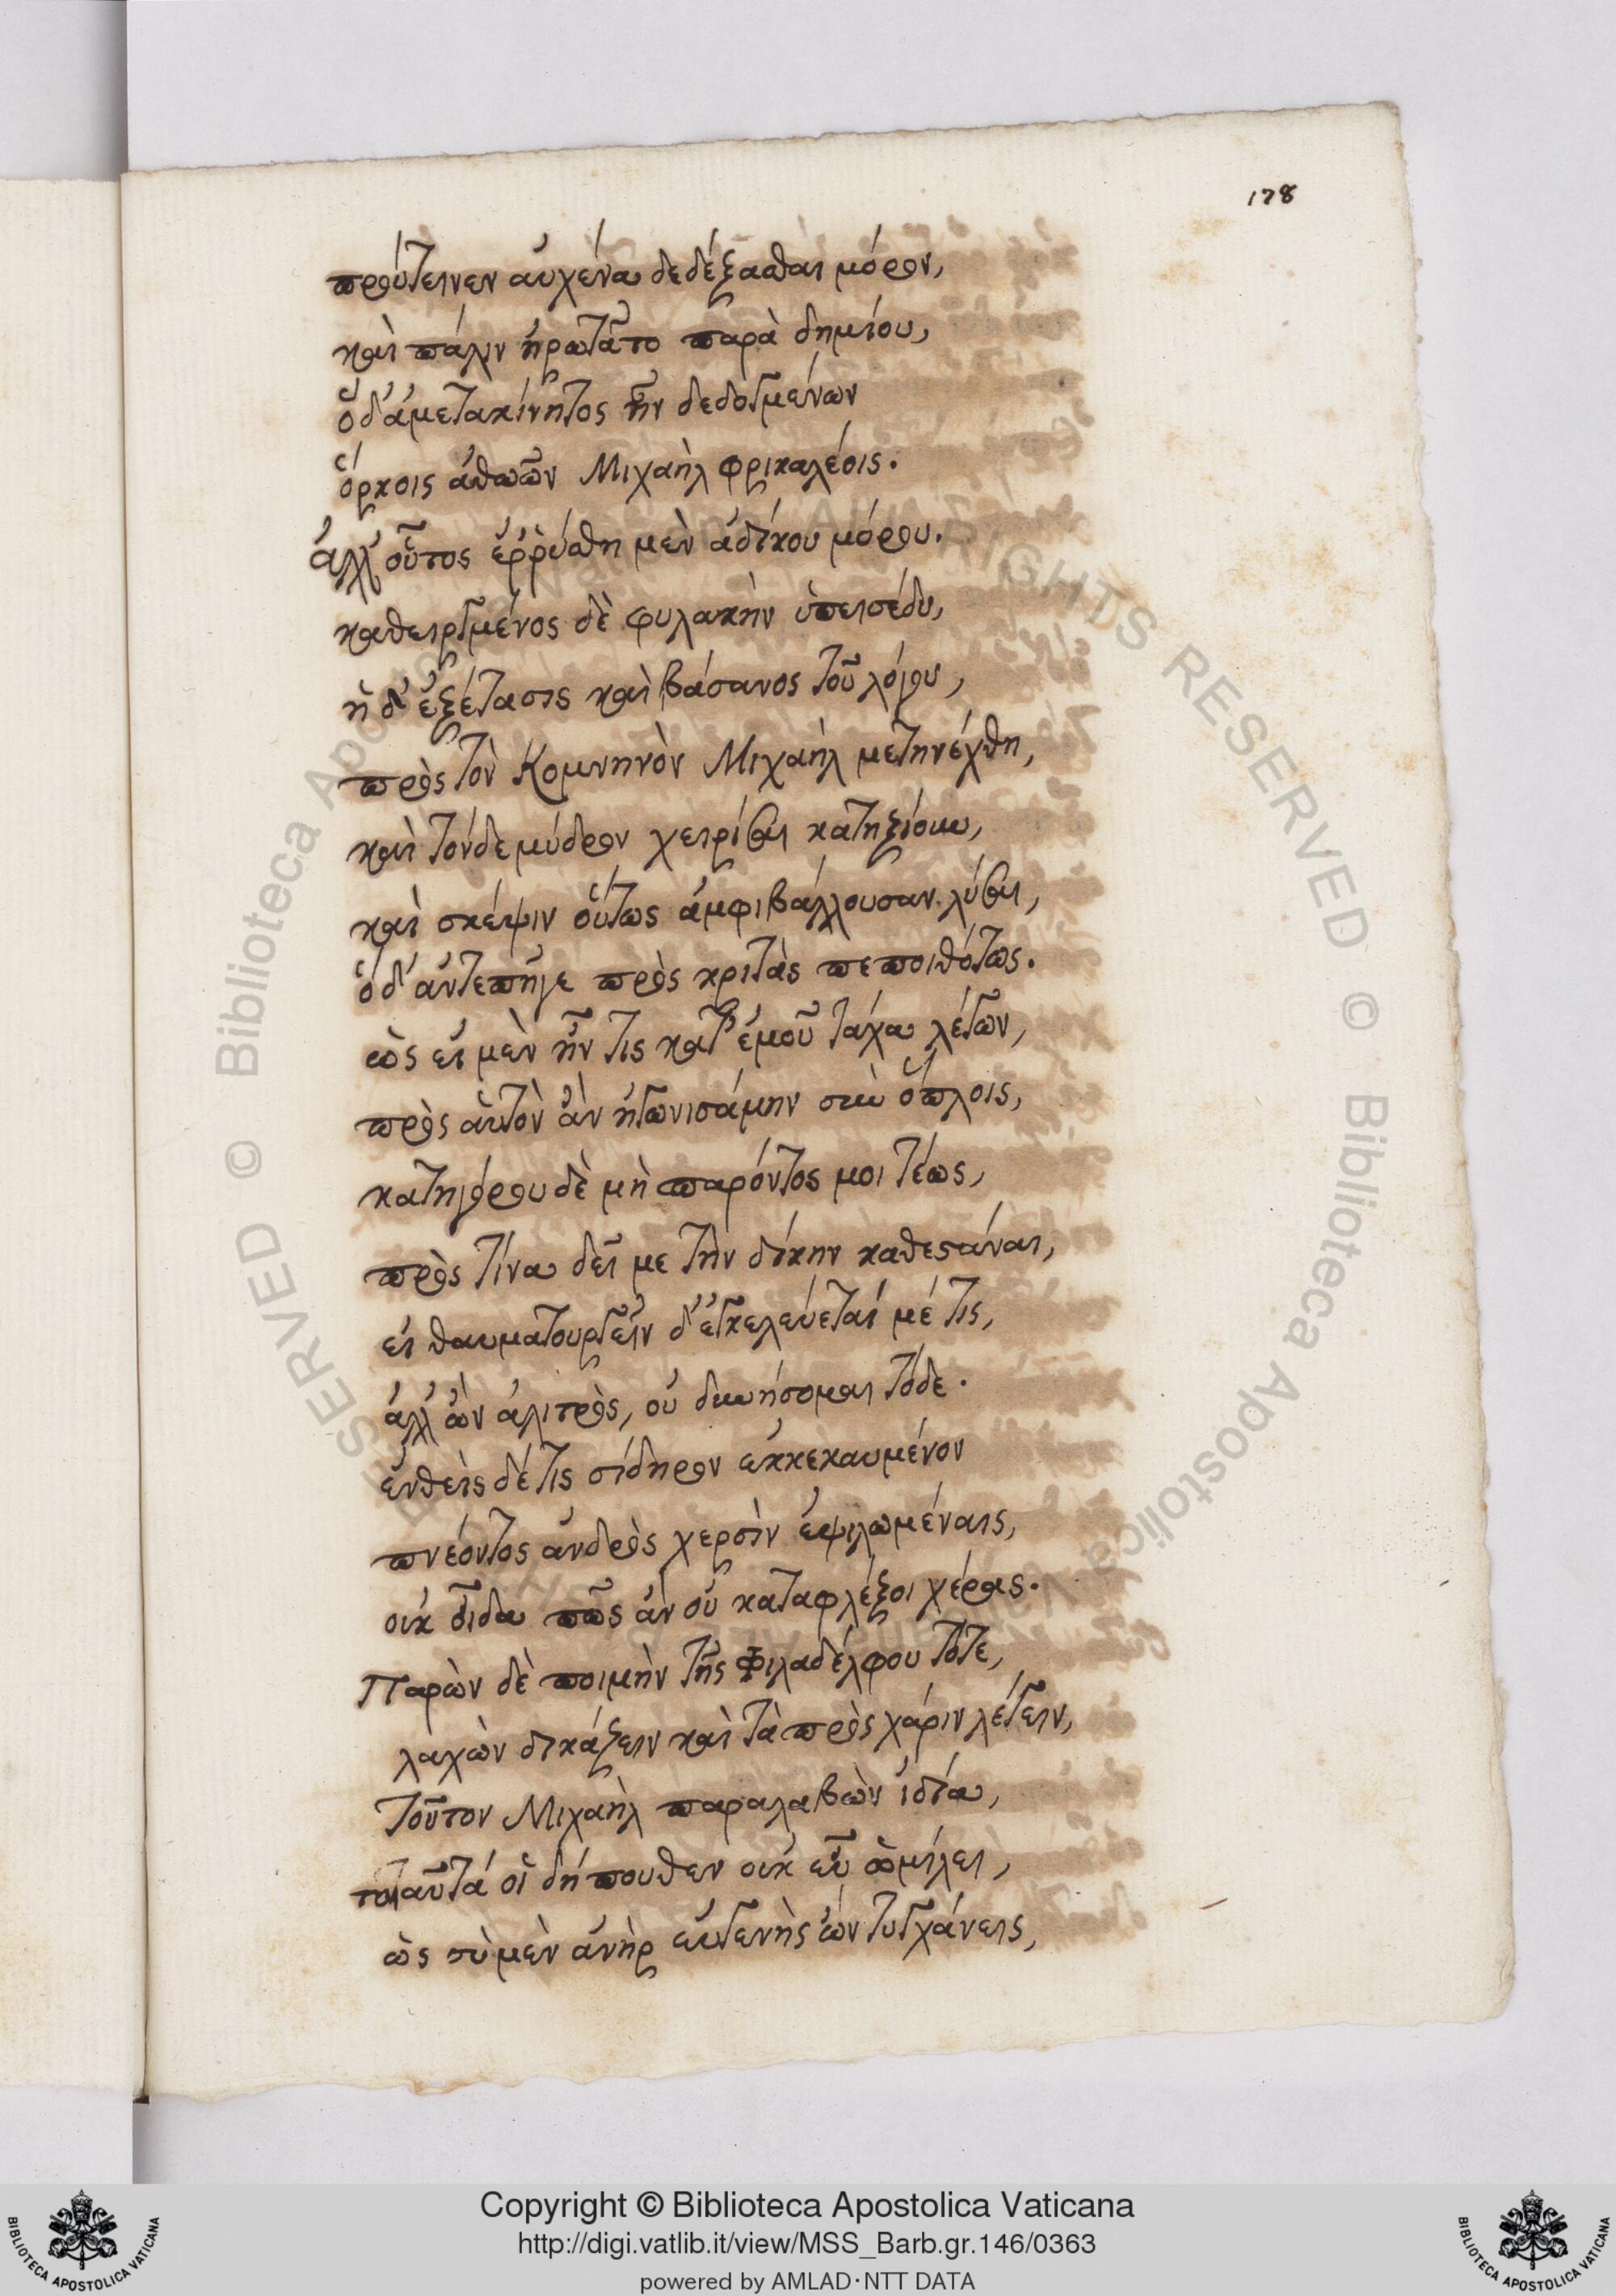 178
προύτεινεν αὐχένα δεδέξασθαι μόρον,
καὶ πάλιν ἠρωτᾶτο παρὰ δημίου,
ὁ δ' ἀμετακίνητος ἦν δεδογμένων
ὅρκοις ἀθωῶν Μιχαὴλ φρικαλέοις.
ἀλλ' οὗτος ἐῤῥύσθη μὲν ἀδίκου μόρου.
καθειργμένος δὲ φυλακὴν ὑπεισέδυ,
ἡ δ' ἐξέτασις καὶ βάσανος τοῦ λόγου,
πρὸς τὸν Κομνηνὸν Μιχαὴλ μετηνέχθη,
καὶ τόνδε μύδρον χειρίσαι κατηξίουν,
καὶ σκέψιν οὕτως ἀμφιβάλλουσαν λύσαι,
ὁ δ' ἀντεπῆγε πρὸς κριτὰς πεποιθότως.
ὡς εἰ μὲν ἦν τις κατ' ἐμοῦ τάχα λέγων,
πρὸς αὐτὸν ἂν ἠγωνισάμην σὺν ὅπλοις,
κατηγόρου δὲ μὴ παρόντος μοι τέως,
πρὸς τίνα δεῖ με τὴν δίκην καθεστάναι,
εἰ θαυματουργεῖν δ' ἐγκελεύεταί μέ τις,
ἀλλ' ὢν ἀλιτρὸς, οὐ δυνήσομαι τόδε.
ἐνθεὶς δέ τις σίδηρον ἐκκεκαυμένον
πνέοντος ἀνδρὸς χερσὶν ἐψιλωμέναις,
οὐκ οἶδα πῶς ἂν οὐ καταφλέξοι χέρας.
Παρὼν δὲ ποιμὴν τῆς Φιλαδέλφου τότε,
λαχὼν δικάζειν καὶ τὰ πρὸς χάριν λέγειν,
Τοῦτον Μιχαὴλ παραλαβὼν ἰδία,
τοιαῦτά οἱ δήπουθεν οὐκ εὖ ὡμίλει,
ὡς σὺ μὲν ἀνὴρ εὐγενὴς ὢν τυγχάνεις,
Copyright © Biblioteca Apostolica Vaticana
http://digi.vatlib.it/view/MSS_Barb.gr.146/0363
powered by AMLAD·NTT DATA